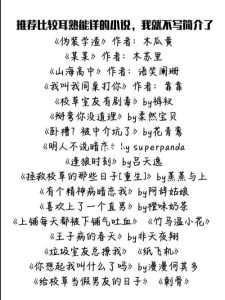 推荐比较耳熟能详的小说，我就不写简介了
《伪装学渣》作者：木瓜黄
《某某》作者：木苏里
《山海高中》作者：语笑阑珊
《我叫我同桌打你》作者：靠靠
《校草室友有剧毒》by裤衩
《掰弯你没道理》by柔然宝贝
《卧槽？被中介坑了》by花青斋
《明人不说暗恋》by superpanda
《逢狼时刻》by吕天逸
《拯救校草的那些日子[重生]》by蒸蒸与上
《有个精神病暗恋我》by阿辞姑娘
《喜欢上了一个直男》by橙味奶茶
《上铺每天都被下铺气吐血》《竹马温小花》
《王子病的春天》by非天夜翔
《垃圾室友总撩我》《纸飞机》
《你想起我叫什么了吗》by漫漫何其多
《给校草当假男友的日子》《刺骨》